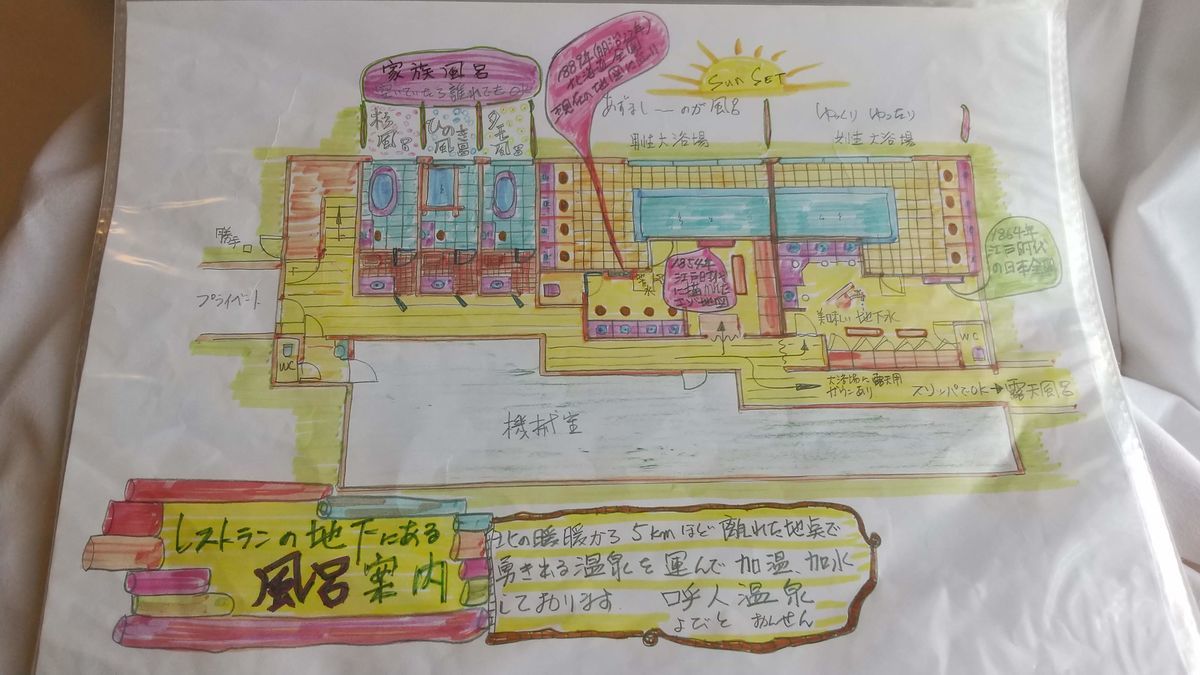 家族風呂
空いていたら離れでもOK
風呂
ひのき
風呂
風呂
北海道全図
現在の地図
Sun SET
あずましーのが風呂
男性大浴場
ゆっくり ゆったり
女性大浴場
勝手口
プライベート
1854年
江戸時代
に描かれた
エゾ地図
1864年
江戸時代
の日本全図
美味しい地下水
WC
WC
大浴場に露天用
ガウンあり
スリッパでOK→露天風呂
機械室
レストランの地下にある
風呂案内
北の暖暖から5kmほど離れた地点で
湧き出る温泉を運んで加温、加水
しております 呼人温泉
よびと おんせん